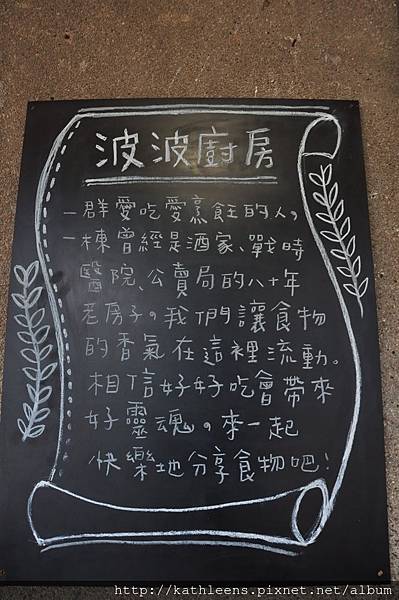 波波廚房
一群愛吃愛烹飪的人。
一棟曾經是酒家、戰時
醫院、公賣局的八十年
老房子。我們讓食物
的香氣在這裡流動。
相信好好吃會帶來
好靈魂。來一起
快樂地分享食物吧!
http://kathleens.pixnet.net/album